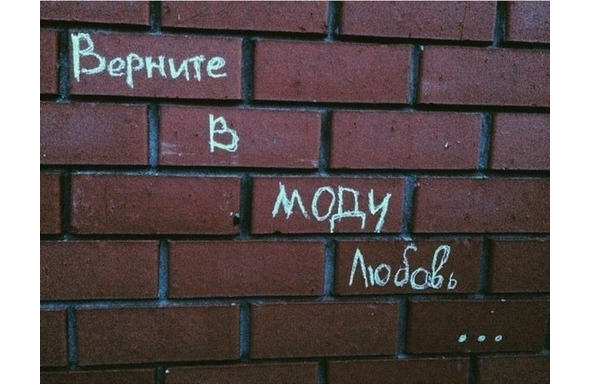 Верните
в
моду
Любовь
...